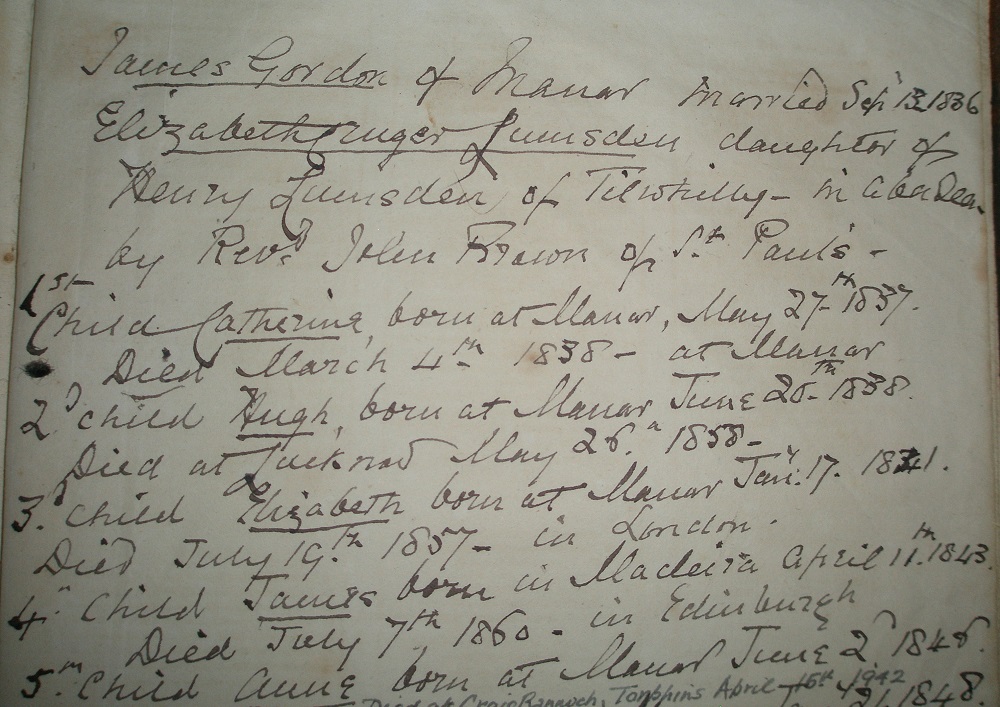 James Gordon of Manar married Sep 13 1836
Elizabeth Cruger Lumsden daughter of
Henry Lumsden of Tilwhilly - in Aberdeen
by Revd. John Brown of St. Paul's -
1st
Child Catherine, born at Manar, May 27th 1837.
Died March 4th 1838 - at Manar
2d child Hugh, born at Manar June 20th 1838.
Died at Lucknow May 1858 -
3d. Child Elizabeth born at Manar Jany. 17. 1841.
Died July 19th 1857 - in London.
4th Child James born in Madeira April 11th. 1843.
Died July 7th 1860 - in Edinburgh
5th. Child Anne born at Manar June 2d
Died at Craig Rannoch, April 15th 1942
1848.